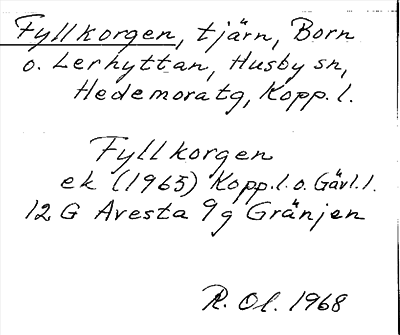 Fyllkorgen, tjärn, Born
o. Lerhyttan, Husby sn,
Hedemora tg, Kopp. l.
Fyllkorgen
ek (1965) Kopp.l.o. Gävl.l.
12 G Avesta 9 g Gränjen
R. Ol. 1968